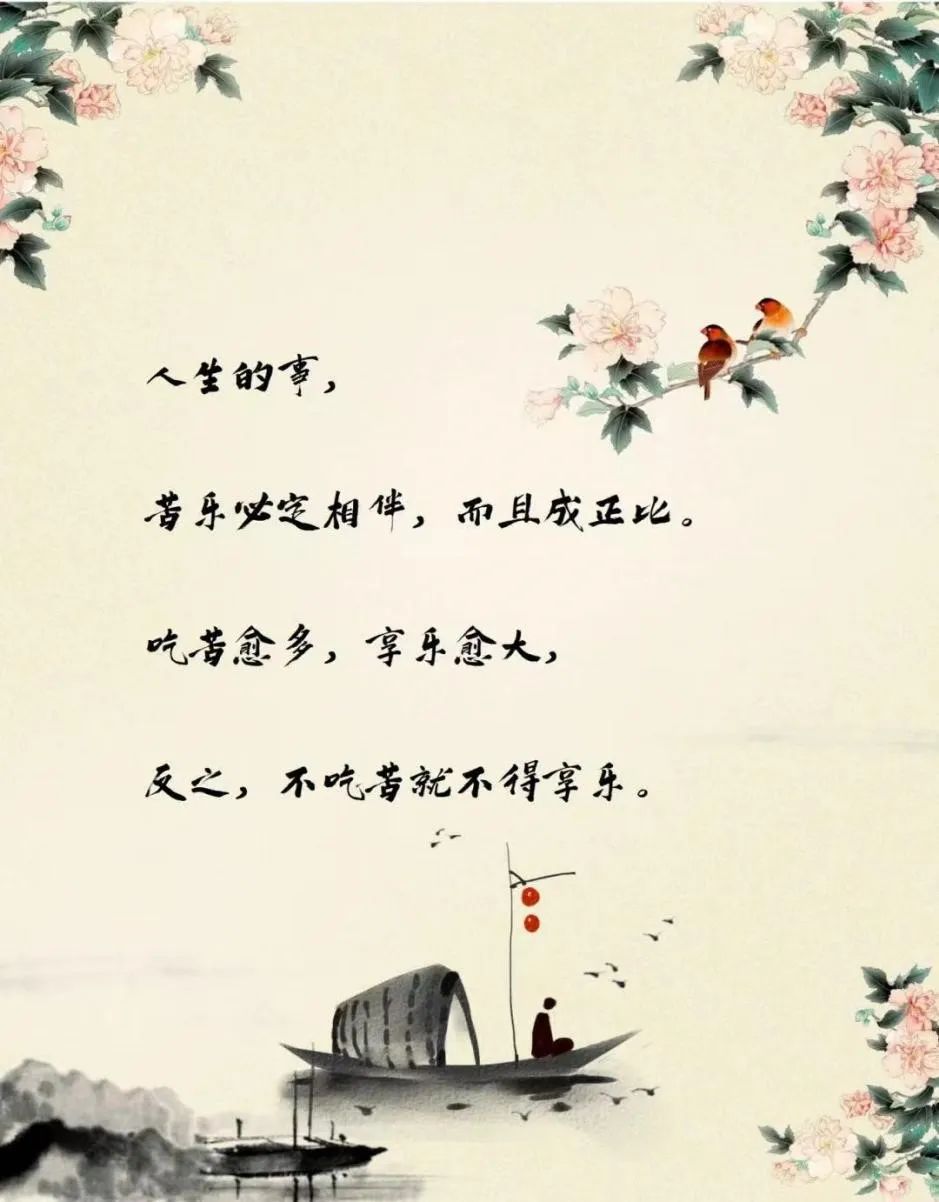 人生的事，
苦乐必定相伴，而且成正比。
吃苦愈多，享乐愈大，
反之，不吃苦就不得享乐。